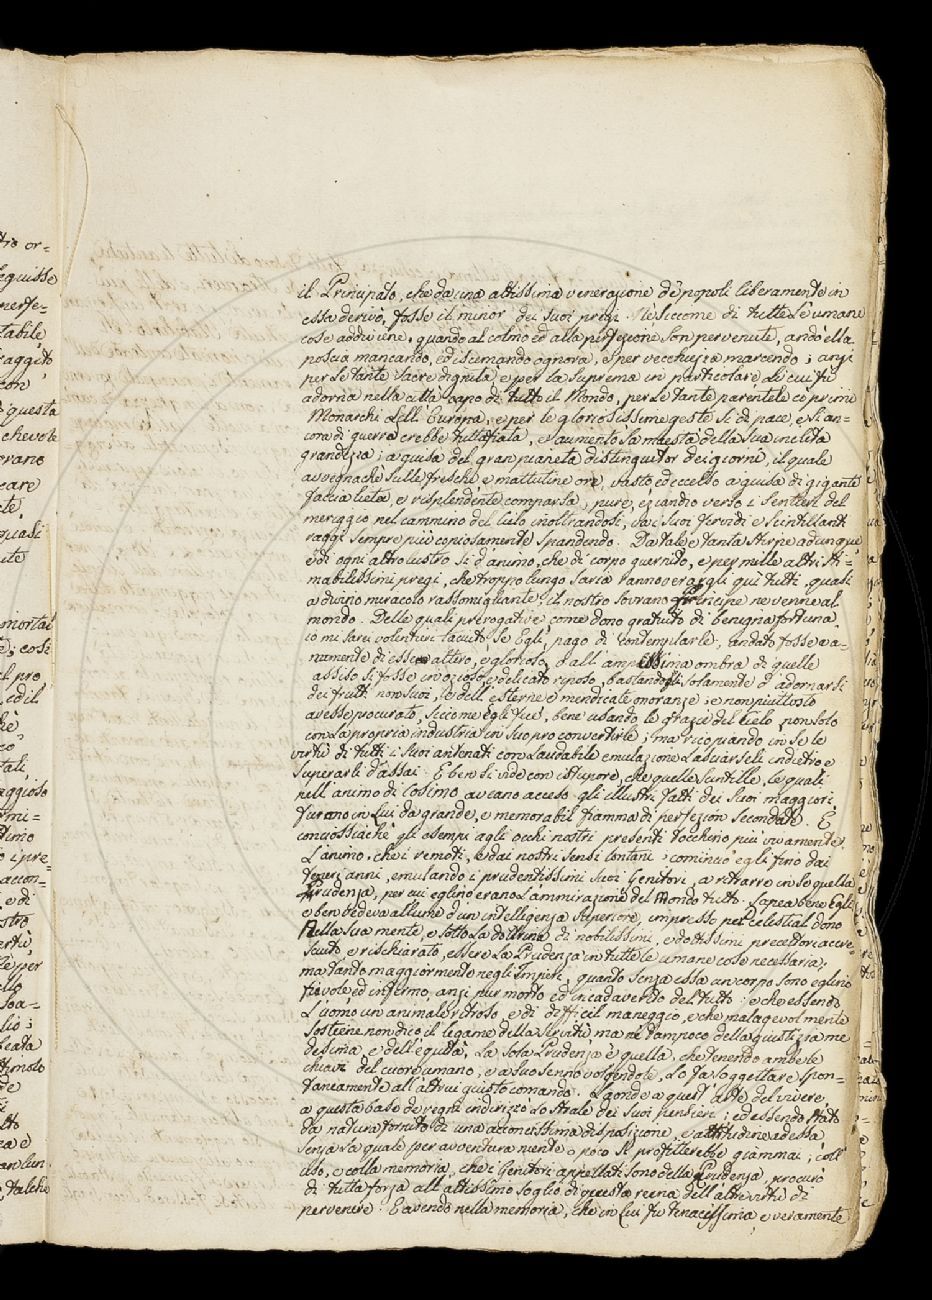 il Principato, che da una altissima venerazione de' popoli liberamente in
essa derivò, fosse il minor dei suoi pregi. Ne siccome di tutte le umane
cose addiviene, quando al colmo ed alla perfezione son pervenute, andò ella
poscia mancando, e discimando ognora, e per vecchiezza marcendo; anzi
per le tante sacre dignità e per la suprema in particolare di cui fu
adorna nella città capo di tutto il Mondo, per le tante parentele co' primi
Monarchi dell' Europa, e per le gloriosissime geste sì di pace, e sì an=
cora di guerra crebbe tuttafiata, e aumentò la maestà della sua inclita
grandezza; a guisa del gran pianeta distinguitor dei giorni, il quale
avvegnachè sulle fresche e mattutine ore, vasto ed eccelso a guisa di gigante
faccia lieta, e risplendente comparsa, pure, eziandio verso i sentieri del
meriggio nel cammino del Cielo inoltrandosi, va i suoi fervidi e scintillanti
raggi sempre più copiosamente spandendo. Da tale e tanta stirpe adunque
e di ogni altro lustro sì d'animo, che di corpo guernito, e per mille altri sti=
mabilissimi pregi, che troppo lungo saria l'annoverargli quì tutti, quasi
a divino miracolo rassomigliante, il nostro sovrano Principe ne venne al
mondo. Delle quali prerogative come dono gratuito di benigna fortuna,
io mi sarei volentieri taciuto, se Egli, pago di contemplarle, andato fosse va=
namente di esse altero, e glorioso, e all' ampissima ombra di quelle
assiso si fosse in ozioso, e delicato riposo, bastandogli solamente d' adornarsi
dei frutti non suoi, e dell' esterne e mendicate onoranze; e non piuttosto
avesse procurato, siccome egli fece, bene usando le grazie del Cielo, non solo
con la propria industria in suo pro convertirle; ma ricopiando in se le
virtù di tutti i suoi antenati con laudabile emulazione lasciarseli indietro e
superarli d'assai. E ben si vide con istupore, che quelle scintille, le quali
nell' animo di Cosimo aveano acceso gli illustri fatti dei suoi maggiori,
furano in Lui da grande, e memorabil fiamma di perfezion secondate. E
conciossiachè gli esempi agli occhi nostri presenti tocchino più vivamente
l'animo, che i remoti, e dai nostri sensi lontani, cominciò egli fino dai
teneri anni, emulando i prudentissimi suoi Genitori, a ritrarre in se quella
Prudenza, per cui eglino erano l'ammirazione del Mondo tutto. Sapea bene Egli
e ben vedeva al lume d'un intelligenza superiore, impresso pel celestial dono
Nella sua mente, e sotto la dottrina di nobilissimi, e dottissimi precettori accre=
sciuto e rischiarato, essere la Prudenza in tutte le umane cose necessaria;
ma tanto maggiormente negli Imperi, quando senza essa un corpo sono eglino
fievole, ed infermo, anzi pur morto ed incadaverito del tutto: e che essendo
l'uomo un animale ritroso, e di difficil maneggio, e che malagevolmente
sostiene non dico il legame della servitù, ma nè tampoco della giustizia me
desima, e dell' equità, la sola Prudenza è quella, che tenendo ambe le
chiavi del cuore umano, e a suo senno volgendole, lo fa soggettare spon=
taneamente all' altrui giusto comando. Laonde a quest' arte del vivere
a questa base de' regni indirizzò lo strale dei suoi pensieri; ed essendo stato
da natura fornito di una acconcissima disposizione, e attitudine ad essa
senza la quale per avventura niente o poco si profitterebbe giammai; coll'
uso, e colla memoria, che i Genitori appellati sono della Prudenza, procurò
di tutta forza all' altissimo soglio di questa reina dell' altre virtù di
pervenire. E avendo nella memoria, che in Lui fu tenacissima, e veramente